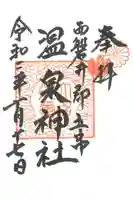 奉拝
西磐井郡
温泉神社
令和二年一月十七日